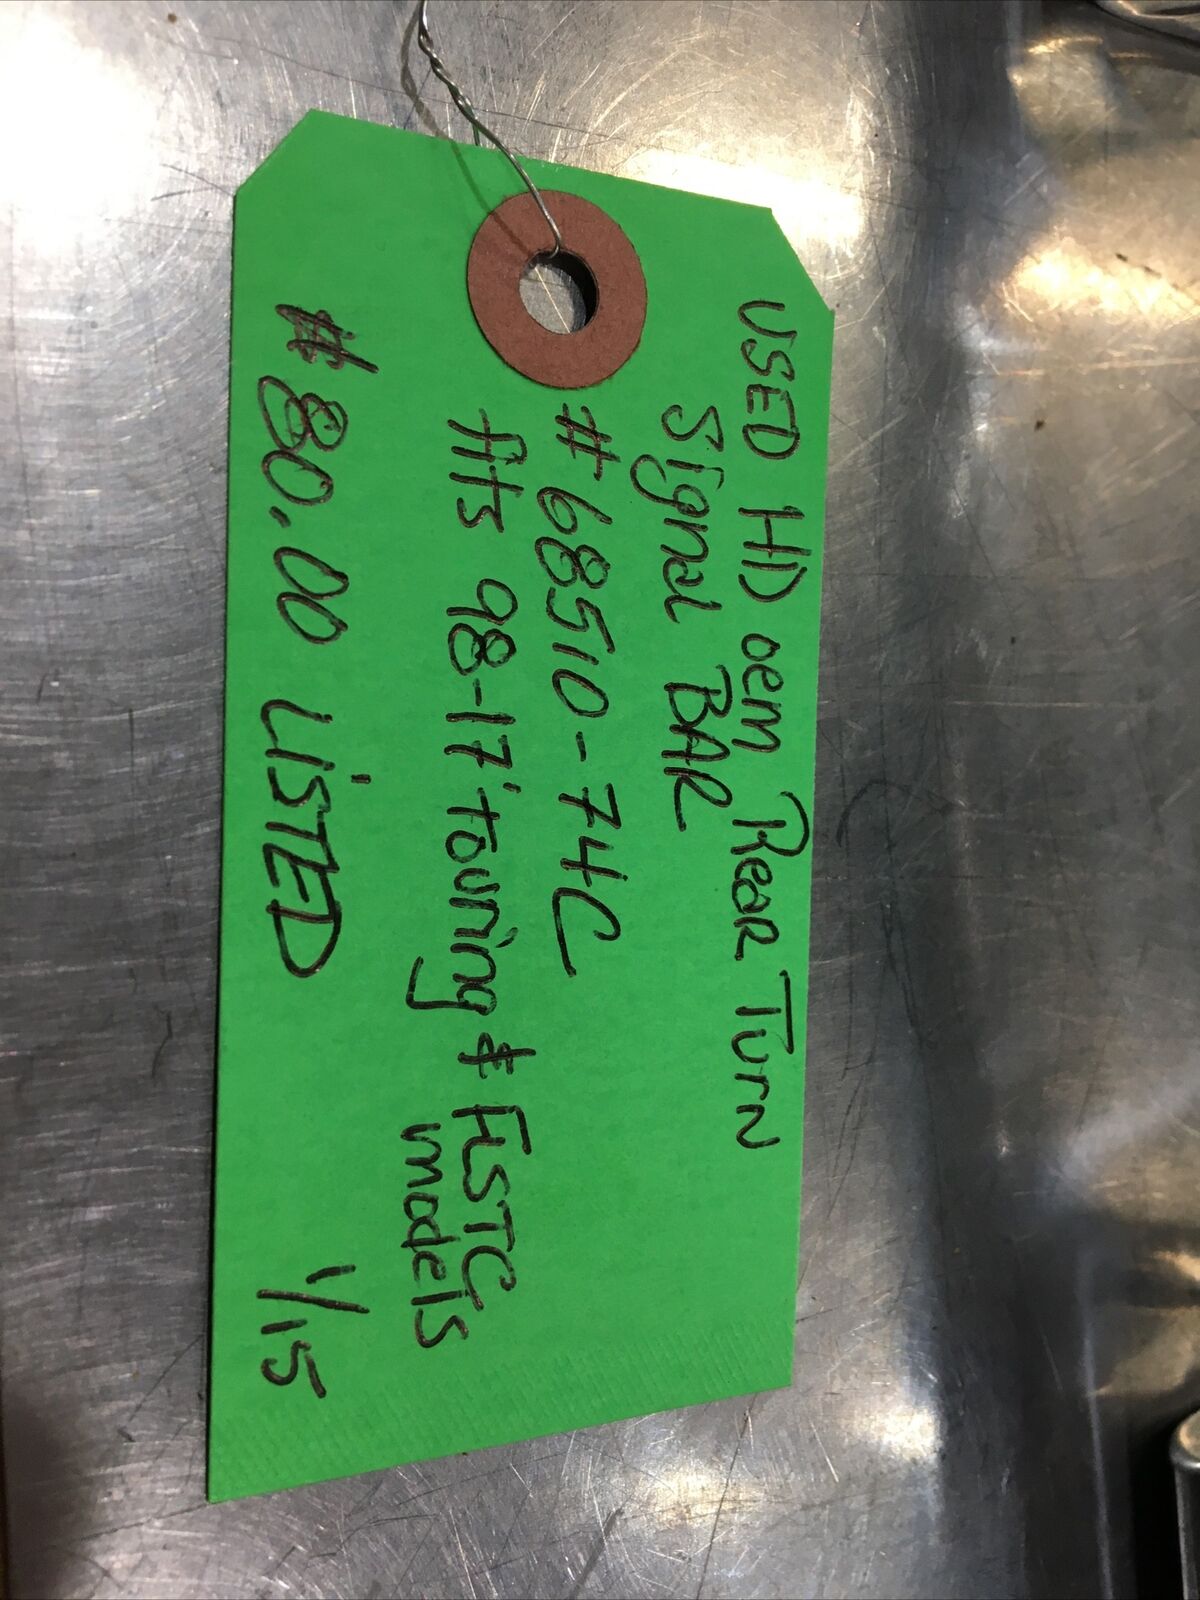 USED HD oem Rear Turn
Signal BAR
#68510-74C
fits 98-17 touring & FLSTC
models
$80.00 LiSTED 1/15